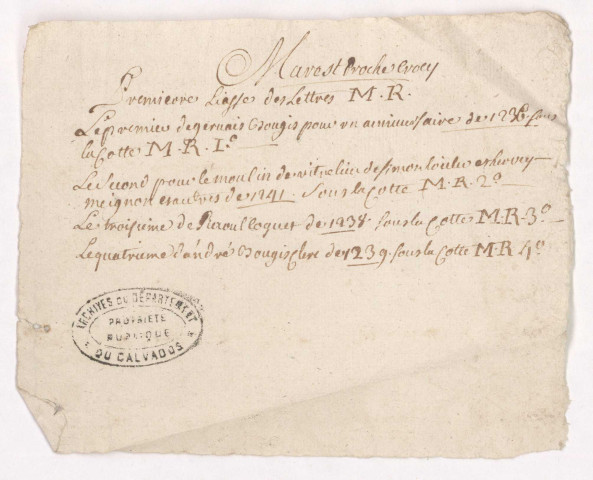 Marest proche Crocy
Premierre Liasse des Lettres M.R.
Le premier de gervais Bougis pour un anniversaire de 1236 sous
la Cotte M.R. 1º
Le second pour le moulin de de Simon
meignon et autres de 1241. sous la Cotte M.R. 2º
Le troisieme de Raoul loquet de 1238 sous la Cotte M.R. 3º
Le quatrieme d'andré Bougis Clerc de 1239. sous la Cotte M.R. 4º
ARCHIVES DU DÉPARTEMENT
PROPRIÉTÉ
PUBLIQUE
DU CALVADOS